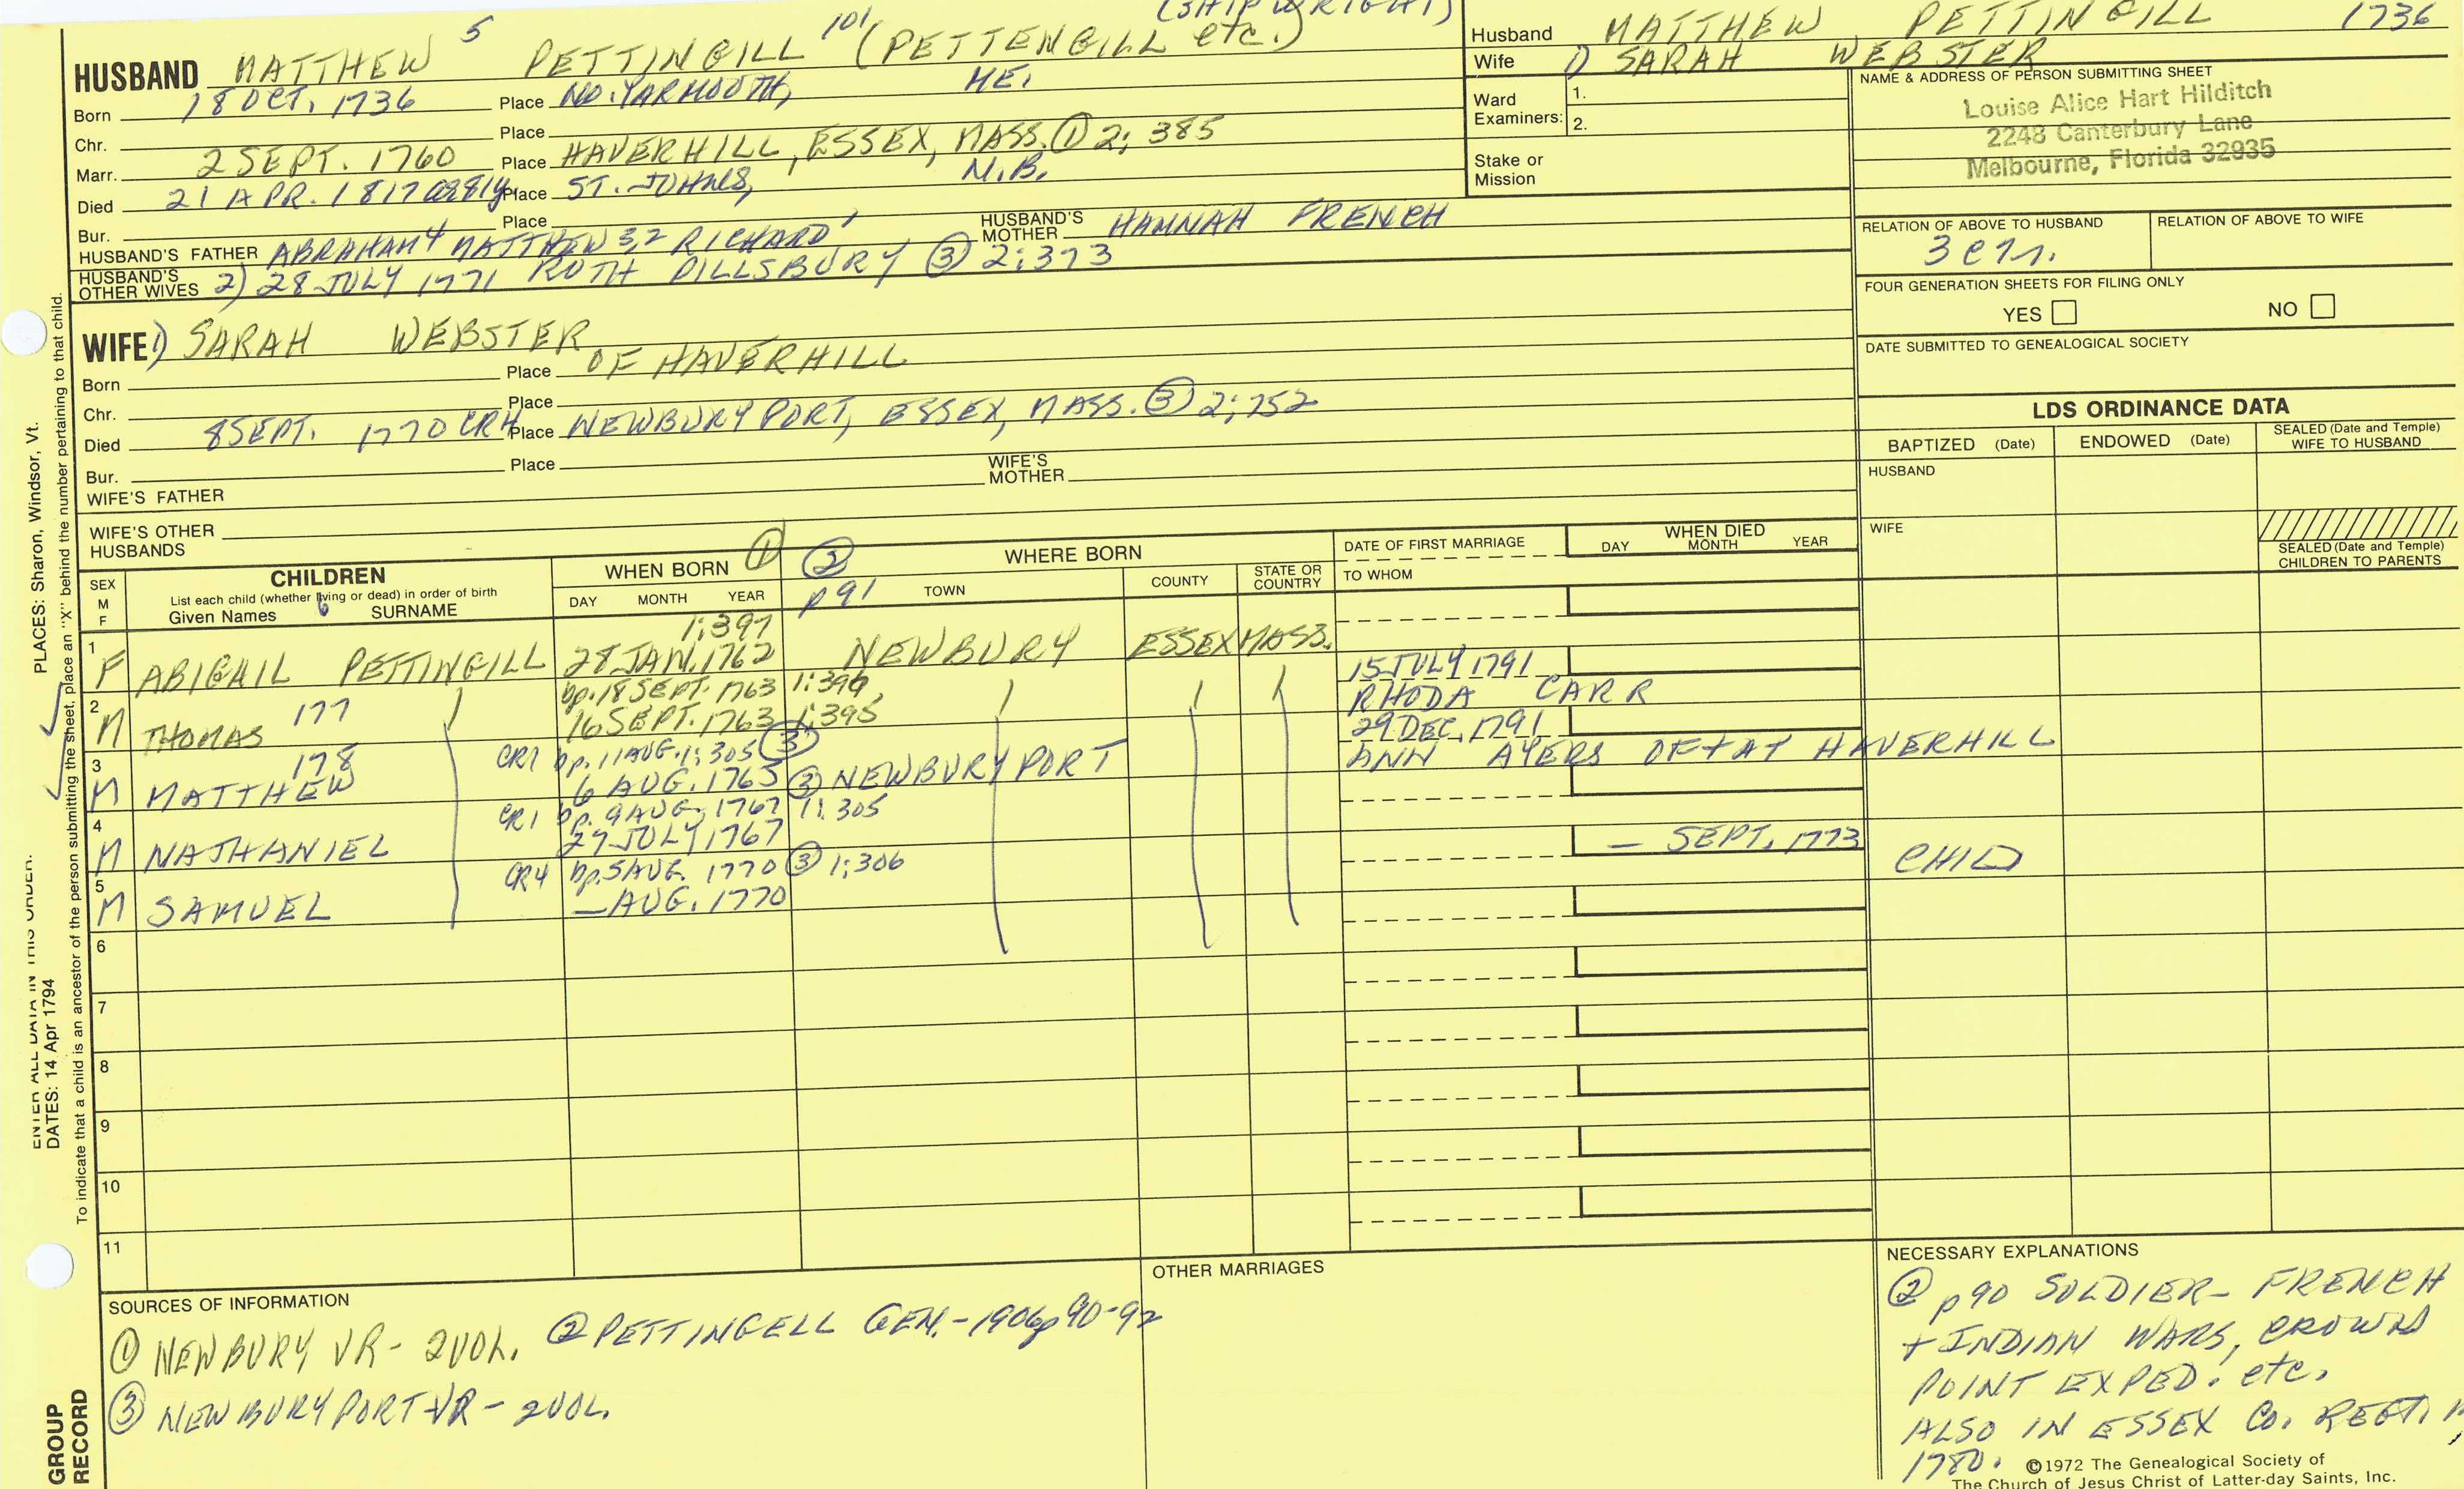 (SHIPWRIGHT)
HUSBAND MATTHEW 5 PETTINGILL 101 (PETTENGILL etc.)
Born 18 OCT. 1736 Place NO. YARMOUTH, ME.
Chr. Place
Marr. 2 SEPT. 1760 Place HAVERHILL, ESSEX, MASS. ① 2; 385
Died 21 APR. 1817 Place ST. JOHNS, N.B.
Bur. Place
HUSBAND'S FATHER ABRAHAM4 MATTHEW 3,2 RICHARD1 HUSBAND'S MOTHER HANNAH FRENCH
HUSBAND'S OTHER WIVES 2) 28 JULY 1771 RUTH PILLSBURY ③ 2:373
Husband MATTHEW PETTINGILL 1736
Wife 1) SARAH WEBSTER
Ward Examiners: 1.
2.
Stake or Mission
NAME & ADDRESS OF PERSON SUBMITTING SHEET
Louise Alice Hart Hilditch
2248 Canterbury Lane
Melbourne, Florida 32935
RELATION OF ABOVE TO HUSBAND RELATION OF ABOVE TO WIFE
FOUR GENERATION SHEETS FOR FILING ONLY
YES NO
DATE SUBMITTED TO GENEALOGICAL SOCIETY
WIFE 1) SARAH WEBSTER
Born Place OF HAVERHILL
Chr. Place
Died 8 SEPT. 1770 CR4 Place NEWBURYPORT, ESSEX, MASS. ③ 2; 752
Bur. Place
WIFE'S FATHER WIFE'S MOTHER
WIFE'S OTHER HUSBANDS
LDS ORDINANCE DATA
BAPTIZED (Date) ENDOWED (Date) SEALED (Date and Temple) WIFE TO HUSBAND
HUSBAND
WIFE
SEALED (Date and Temple) CHILDREN TO PARENTS
SEX M F
CHILDREN
List each child (whether living or dead) in order of birth
Given Names 6 SURNAME
WHEN BORN ①
DAY MONTH YEAR
② p 91
WHERE BORN
TOWN COUNTY STATE OR COUNTRY
DATE OF FIRST MARRIAGE
TO WHOM
WHEN DIED
DAY MONTH YEAR
1:397
1 F ABIGAIL PETTINGILL 28 JAN. 1762 NEWBURY ESSEX MASS.
bp. 18 SEPT. 1763 1:396, 15 JULY 1791
2 M THOMAS 177 16 SEPT. 1763 1:395 RHODA CARR
CR1 bp. 11 AUG. 1:305 ③ 29 DEC. 1791
3 M MATTHEW 178 6 AUG. 1765 ③ NEWBURYPORT ANN AYERS OF + AT HAVERHILL
CR1 bp. 9 AUG. 1767 1:305
4 M NATHANIEL 27 JULY 1767 — SEPT. 1773 CHILD
CR4 bp. 5 AUG. 1770 ③ 1:306
5 M SAMUEL — AUG. 1770
6
7
8
9
10
11
SOURCES OF INFORMATION
① NEWBURY VR - 2 VOL. ② PETTINGELL GEN. - 1906 p 90-92
③ NEWBURYPORT VR - 2 VOL.
OTHER MARRIAGES
NECESSARY EXPLANATIONS
② p 90 SOLDIER - FRENCH
+ INDIAN WARS, CROWN
POINT EXPED. etc.
ALSO IN ESSEX CO. REGT.
1780.
©1972 The Genealogical Society of
The Church of Jesus Christ of Latter-day Saints, Inc.
PLACES: Sharon, Windsor, Vt.
ENTER ALL DATA IN THIS ORDER:
DATES: 14 Apr 1794
To indicate that a child is an ancestor of the person submitting the sheet, place an "X" behind the number pertaining to that child.
GROUP
RECORD